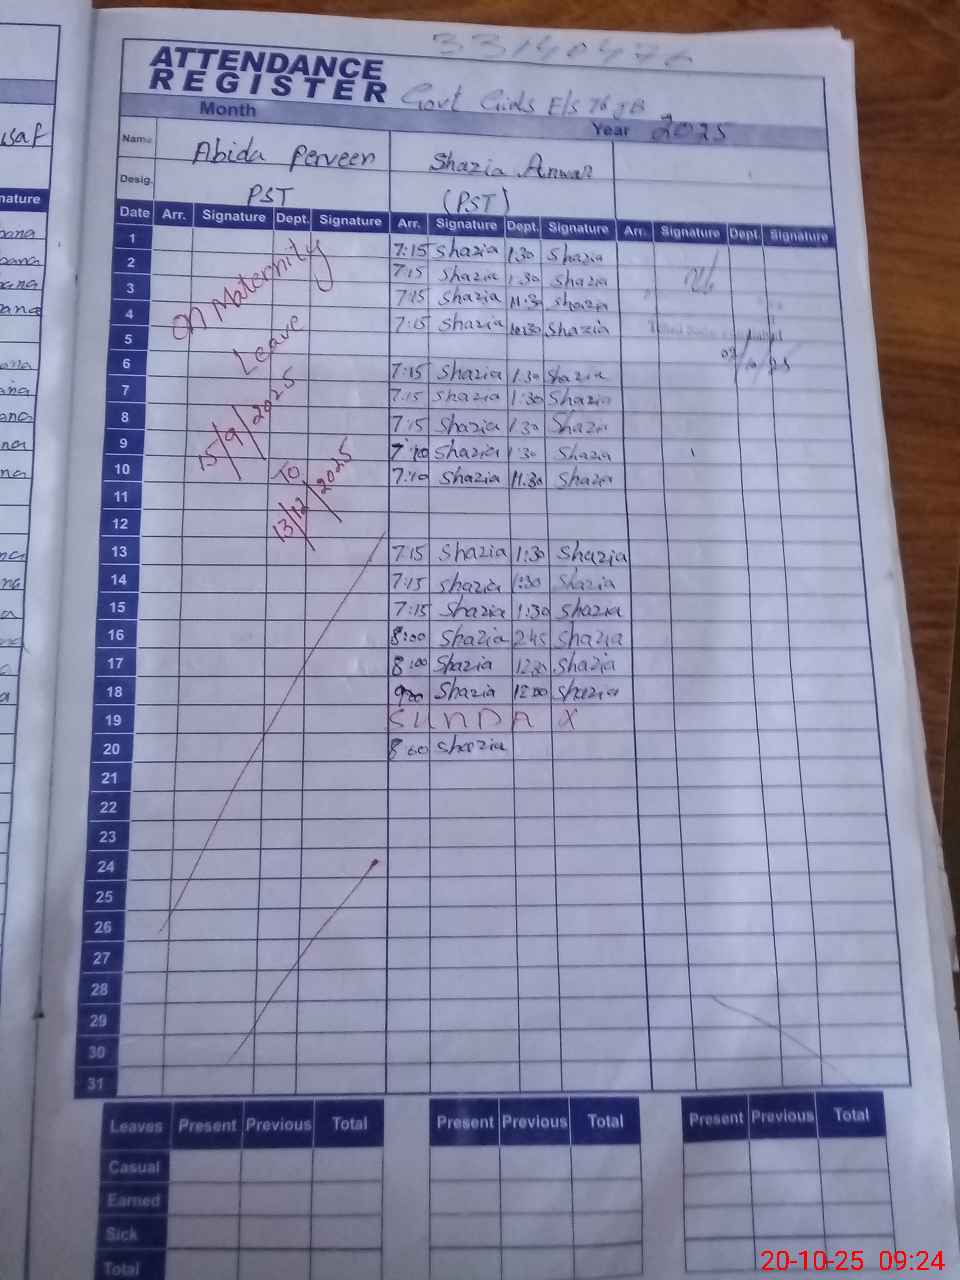 33140476
ATTENDANCE
REGISTER
Govt Girls E/S 76 JB
Month
Year 2025
Name Abida Perveen Shazia Anwar
Desig. PST (PST)
Date Arr. Signature Dept. Signature Arr. Signature Dept. Signature Arr. Signature Dept. Signature
1 7:15 Shazia 1:30 Shazia
2 7:15 Shazia 1:30 Shazia
3 7:15 Shazia 11:30 Shazia
4 7:15 Shazia Shazia
5
6 7:15 Shazia 1:30 Shazia
7 7:15 Shazia 1:30 Shazia
8 7:15 Shazia 1:30 Shazia
9 7:10 Shazia 1:30 Shazia
10 7:10 Shazia 11:30 Shazia
11
12
13 7:15 Shazia 1:30 Shazia
14 7:15 Shazia 1:30 Shazia
15 7:15 Shazia 1:30 Shazia
16 8:00 Shazia 2:45 Shazia
17 8:00 Shazia 12:30 Shazia
18 9:00 Shazia 12:00 Shazia
19 SUNDAY
20 8:00 Shazia
21
22
23
24
25
26
27
28
29
30
31
On Maternity
Leave
15/9/2025
To
13/12/2025
Leaves Present Previous Total Present Previous Total Present Previous Total
Casual
Earned
Sick
Total
20-10-25 09:24